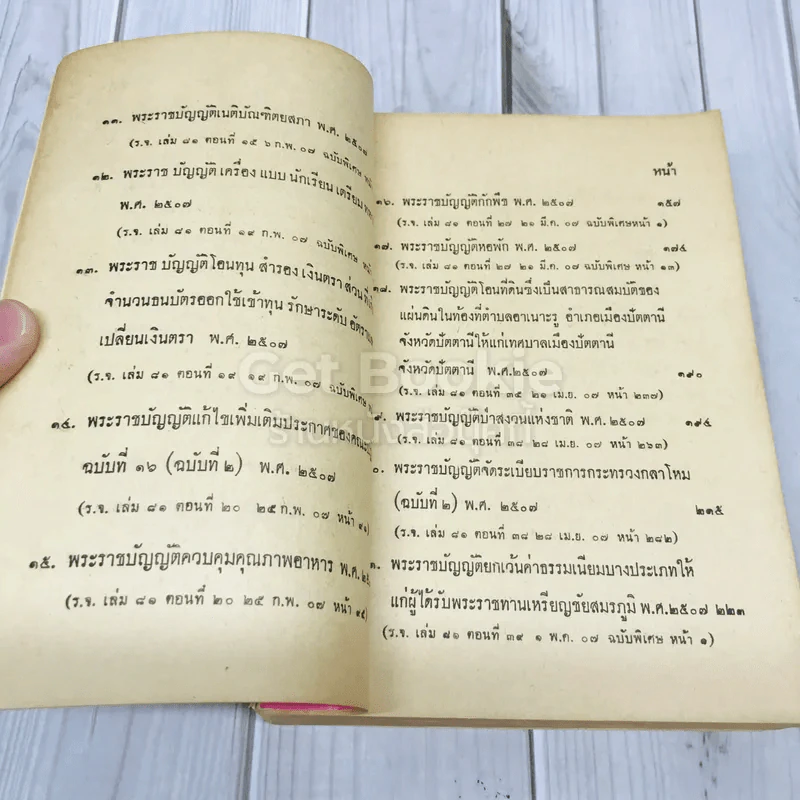 ๑๑. พระราชบัญญัติเนติบัณฑิตยสภา พ.ศ. ๒๕๐๗
(ร.จ. เล่ม ๘๑ ตอนที่ ๑๕ ๖ ก.พ. ๐๗ ฉบับพิเศษ
๑๒. พระราช บัญญัติ เครื่อง แบบ นักเรียน เตรียม
พ.ศ. ๒๕๐๗
(ร.จ. เล่ม ๘๑ ตอนที่ ๑๙ ก.พ. ๐๗ ฉบับพิเศษ
๑๓. พระราช บัญญัติโอนทุน สำรอง เงินตรา ส่วน
จำนวนธนบัตรออกใช้เข้าทุน รักษาระดับ อัตรา
เปลี่ยนเงินตรา พ.ศ. ๒๕๐๗
(ร.จ. เล่ม ๘๑ ตอนที่ ๑๙ ๑๙ ก.พ. ๐๗ ฉบับพิเศษ
๑๔. พระราชบัญญัติแก้ไขเพิ่มเติมประกาศของคณะ
ฉบับที่ ๑๖ (ฉบับที่ ๒) พ.ศ. ๒๕๐๗
(ร.จ. เล่ม ๘๑ ตอนที่ ๒๐ ๒๕ ก.พ. ๐๗ หน้า
๑๕. พระราชบัญญัติควบคุมคุณภาพอาหาร พ.ศ.
(ร.จ. เล่ม ๘๑ ตอนที่ ๒๐ ๒๕ ก.พ. ๐๗ หน้า
หน้า
๑๖. พระราชบัญญัติกักพืช พ.ศ. ๒๕๐๗ ๑๕๗
(ร.จ. เล่ม ๘๑ ตอนที่ ๒๗ ๒๑ มี.ค. ๐๗ ฉบับพิเศษหน้า ๑)
๑๗. พระราชบัญญัติหอพัก พ.ศ. ๒๕๐๗ ๑๗๔
(ร.จ. เล่ม ๘๑ ตอนที่ ๒๗ ๒๑ มี.ค. ๐๗ ฉบับพิเศษ หน้า ๑๓)
๑๘. พระราชบัญญัติโอนที่ดินซึ่งเป็นสาธารณสมบัติของ
แผ่นดินในท้องที่ตำบลอาเนาะรู อำเภอเมืองปัตตานี
จังหวัดปัตตานีให้แก่เทศบาลเมืองปัตตานี
จังหวัดปัตตานี พ.ศ. ๒๕๐๗ ๑๙๐
(ร.จ. เล่ม ๘๑ ตอนที่ ๓๕ ๒๑ เม.ย. ๐๗ หน้า ๒๓๗)
๙. พระราชบัญญัติป่าสงวนแห่งชาติ พ.ศ. ๒๕๐๗ ๑๙๔
(ร.จ. เล่ม ๘๑ ตอนที่ ๓๘ ๒๘ เม.ย. ๐๗ หน้า ๒๖๓)
๐. พระราชบัญญัติจัดระเบียบราชการกระทรวงกลาโหม
(ฉบับที่ ๒) พ.ศ. ๒๕๐๗ ๒๑๕
(ร.จ. เล่ม ๘๑ ตอนที่ ๓๘ ๒๘ เม.ย. ๐๗ หน้า ๒๘๒)
๑. พระราชบัญญัติยกเว้นค่าธรรมเนียมบางประเภทให้
แก่ผู้ได้รับพระราชทานเหรียญชัยสมรภูมิ พ.ศ.๒๕๐๗ ๒๒๓
(ร.จ. เล่ม ๘๑ ตอนที่ ๓๙ ๑ พ.ค. ๐๗ ฉบับพิเศษ หน้า ๑)
Get Bookie